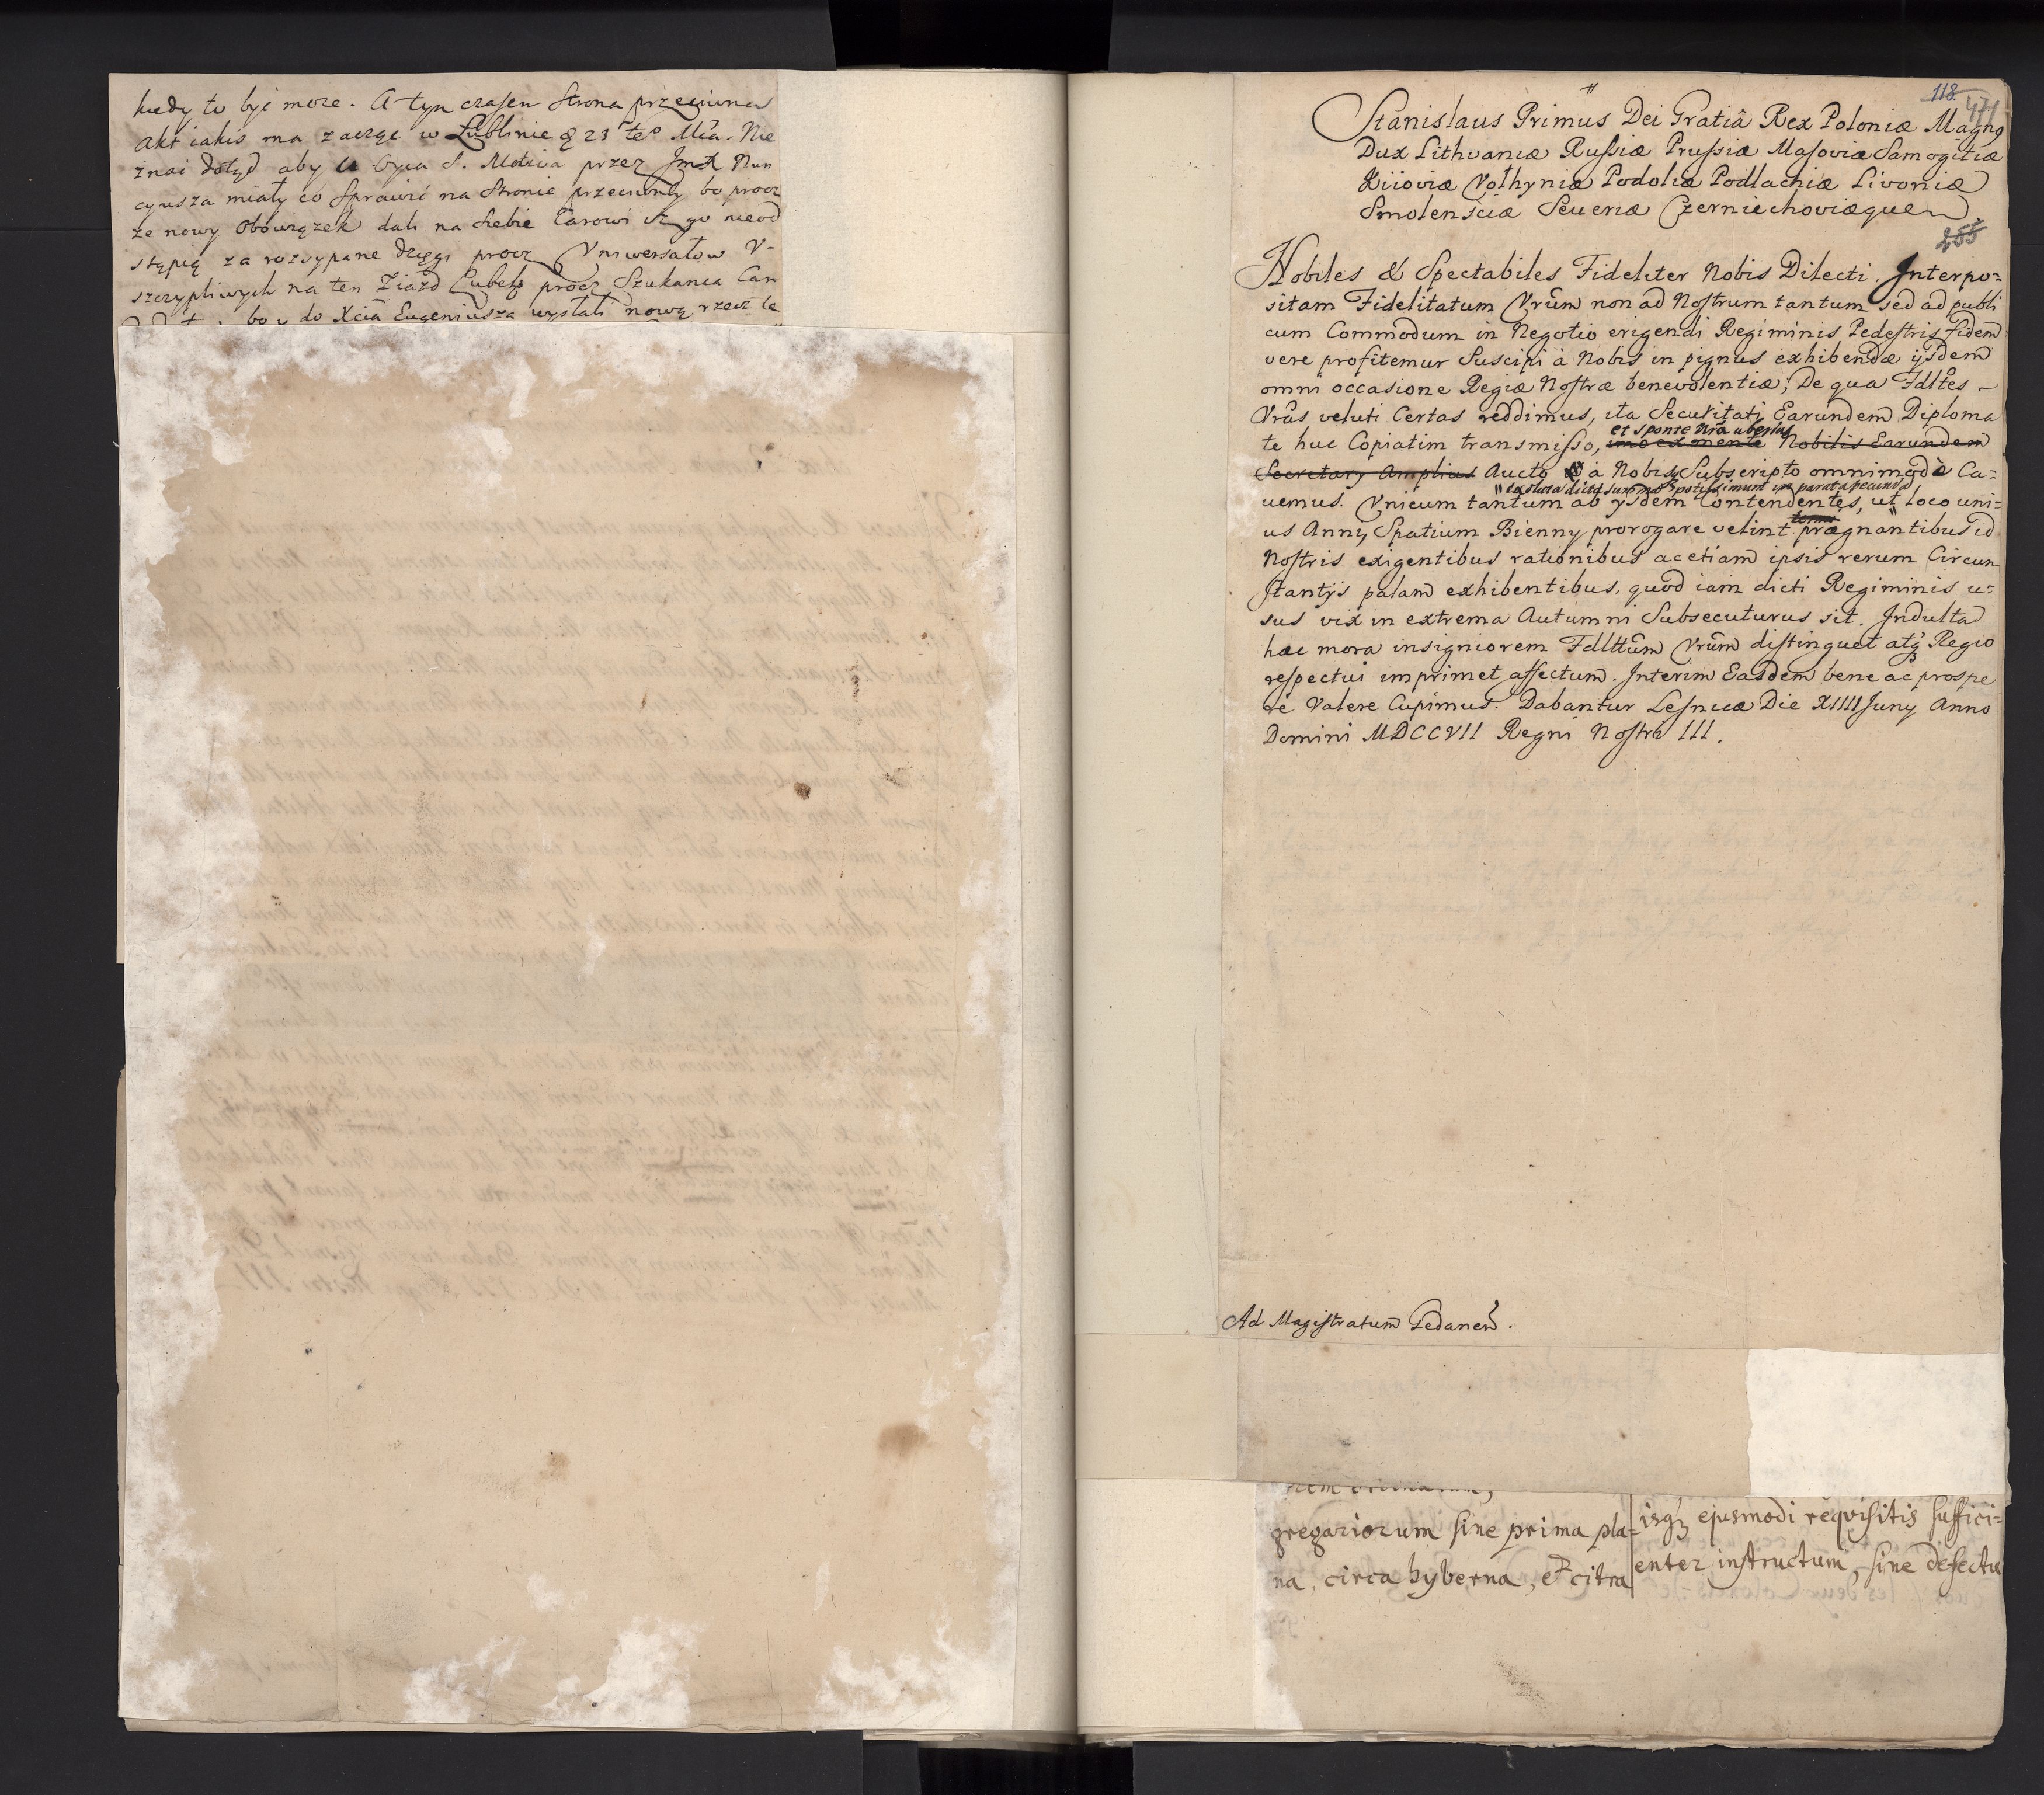 kiedy to być może. A tym czasem Strona przeciwna
akt iakis ma zacząc w Lublinie 23 te° Mca. Nie
znać dotąd aby u Oyca S. Motiva przez Jmć Nun
cyusza miały co Sprawić na Stronie przeciwney bo procz
że nowy obowiązek dali na Siebie Carowi iz go nieod
stąpią za rozsypane dzęgi procz Vniwersałow V-
szczypliwych na ten Ziazd Lubels procz Szukania Can
bo y do Xcia Eugeniusza wysłali nową rzecz te
118.
471
Stanislaus Primus Dei Gratiâ Rex Poloniæ Magng
Dux Lithvaniæ Russiæ Prussiæ Masoviæ Samogitiæ
Kiioviæ Volhyniæ Podoliæ Podlachiæ Livoniæ
Smolensciæ Seueriæ Czerniechoviæque
255
Nobiles & Spectabiles Fideliter Nobis Dilecti. Interpo=
sitam Fidelitatum Vrûm non ad Nostrum tantum sed ad publi
cum Commodum in Negotio erigendi Regiminis Pedestris Fidem
vere profitemur Suscipi à Nobis in pignus exhibendæ ijsdem
omni occasione Regiæ Nostræ benevolentiæ; De qua Fdltes -
Vrâs veluti Certas reddimus, ita Securitati Earundem Diploma
et sponte Nrâ uberius
te huc Copiatim transmisso, imo ex mente Nobilis Earundem
Secretary Amplius Aucto à Nobisq Subscripto omnimodè Ca=
exoluta dictâ summâ potissimum in parata pecunia
uemus. Vnicum tantum ab ysdem Contendentes, ut loco uni=
us Anny Spatium Bienny prorogare velint prægnantibus id
Nostris exigentibus rationibus ac etiam ipsis rerum Circum
stantijs palam exhibentibus, quod iam dicti Regiminis u=
sus vix in extrema Autumni Subsecuturus sit. Indulta
hæc mora insigniorem Fdlttûm Vrûm distinguet atq Regio
respectui imprimet affectum. Interim Easdem bene ac prospe
re Valere Cupimus. Dabantur Lesnicæ Die XIIII Juny Anno
Domini MDCCVII Regni Nostri III.
Ad Magistratum Gedanen.
gregariorum sine prima pla=
na, circa hyberna, et citra
isq ejusmodi reqvisitis suffici=
enter instructum, sine defectu